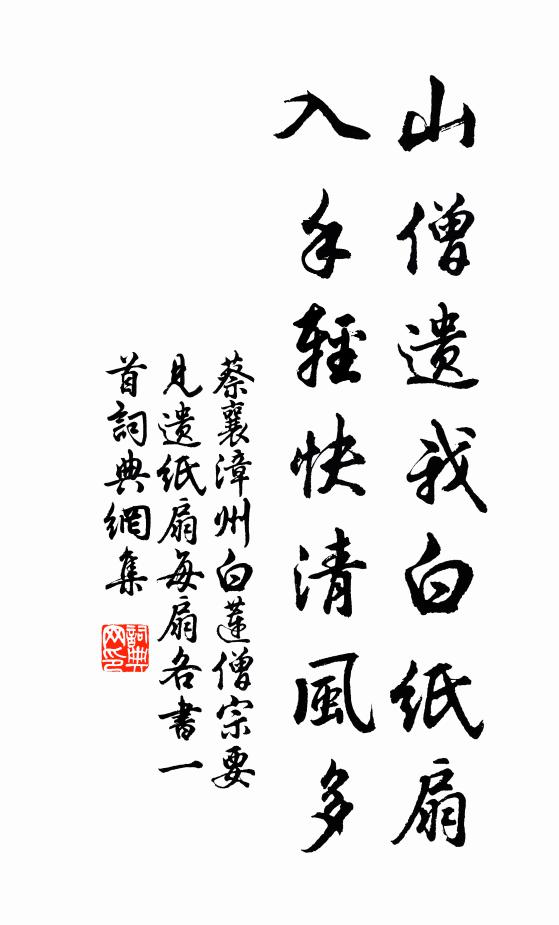 山僧遺我白紙扇
入手輕快清風多
蔡襄漳州白蓮僧宗要
見遺紙扇每扇各書一
首詞典網集
詞典
网印